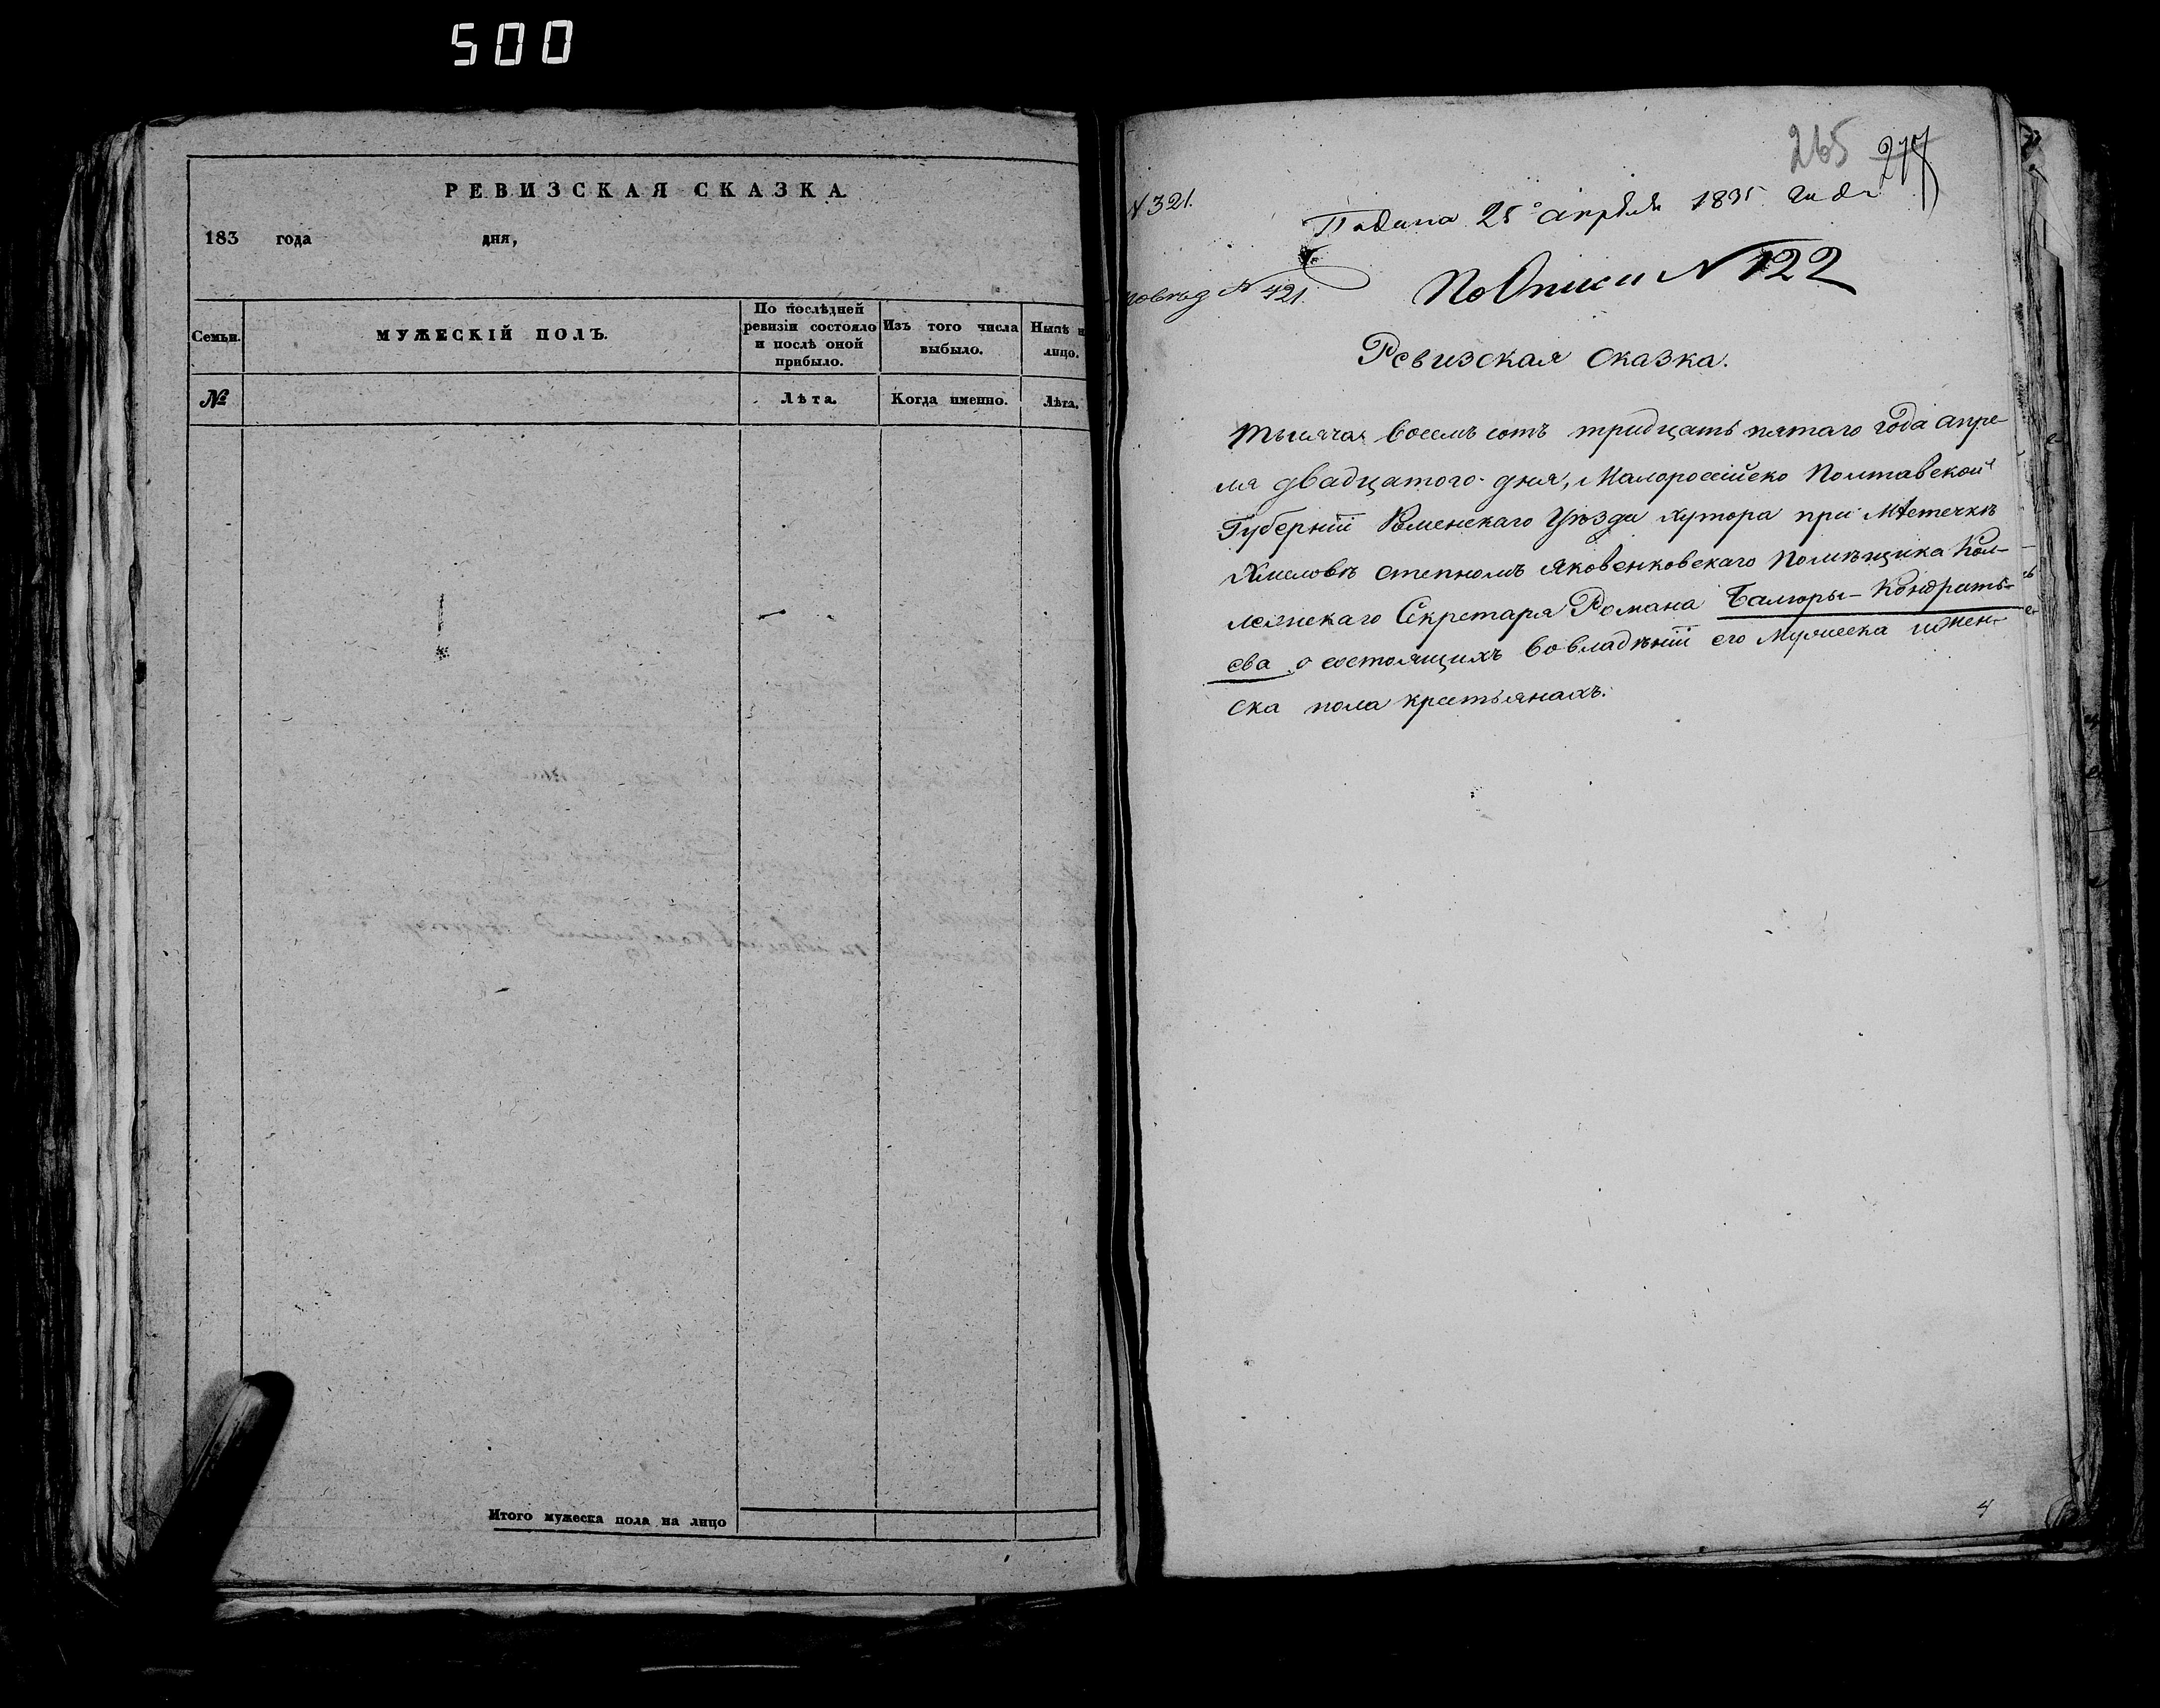 500
РЕВИЗСКАЯ СКАЗКА
183 года дня,
Семьи.
МУЖЕСКІЙ ПОЛЪ.
По послѣдней ревизіи состояло и послѣ оной прибыло.
Изъ того числа выбыло.
Нынѣ н лицо.
№
Лѣта.
Когда именно.
Лѣта.
Итого мужеска пола на лицо
265 277
N 321.
Подана 25 апрѣля 1835 года
N 421.
По Описи N 122
Ревизская сказка.
Тысяча восемь сотъ тридцать пятаго года апре
ля двадцатого дня, Малоросійско Полтавской
Губерніи Роменскаго Уѣзда хутора при Мѣстечкѣ
Хмеловѣ степномъ Яковенковскаго Помѣщика Кол-
лежскаго Секретаря Романа Балюры-Кондрать-
ева о состоящихъ во владѣніи его Мужеска и жен-
ска пола крестьянахъ.